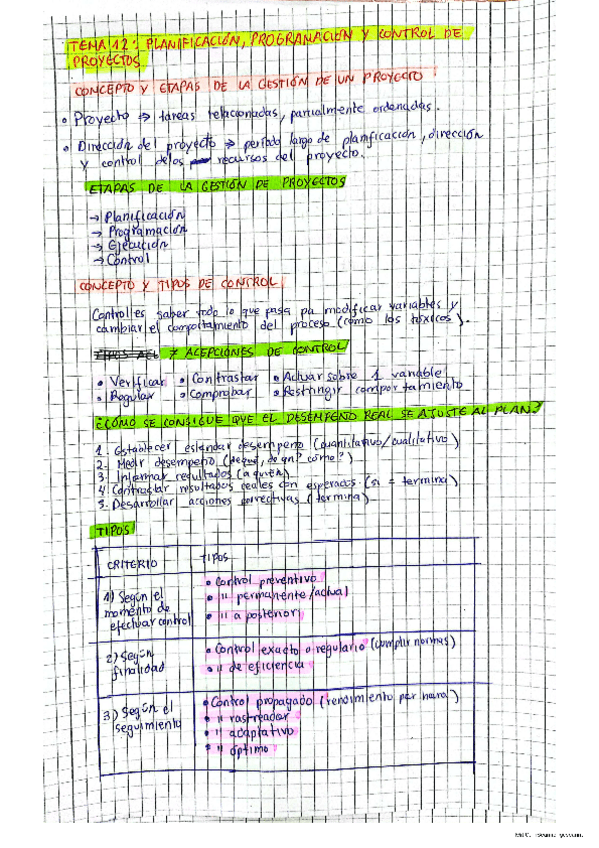 TEMA 12: PLANIFICACIÓN, PROGRAMACIÓN Y CONTROL DE
PROYECTOS
CONCEPTO Y ETAPAS DE LA GESTIÓN DE UN PROYECTO
• Proyecto => tareas relacionadas, parcialmente ordenadas.
• Dirección del proyecto => período largo de planificación, dirección
y control de los recursos del proyecto.
ETAPAS DE LA GESTIÓN DE PROYECTOS
→ Planificación
→ Programación
→ Ejecución
→ Control
CONCEPTO Y TIPOS DE CONTROL
Control es saber todo lo que pasa pa modificar variables y
cambiar el comportamiento del proceso (como los tóxicos).
7 ACEPCIONES DE CONTROL
• Verificar • Contrastar • Actuar sobre 1 variable
• Regular • Comprobar • Restringir comportamiento
¿CÓMO SE CONSIGUE QUE EL DESEMPEÑO REAL SE AJUSTE AL PLAN?
1. Establecer estándar desempeño (cuantitativo/cualitativo)
2. Medir desempeño (de qué, de qn? cómo?)
3. Informar resultados (a quién)
4. Contrastar resultados reales con esperados (si = termina)
5. Desarrollar acciones correctivas (termina)
TIPOS
CRITERIO TIPOS
1) Según el
momento de
efectuar control
• Control preventivo
• " permanente/actual
• " a posteriori
2) Según
finalidad
• Control exacto o regulario (cumplir normas)
• " de eficiencia
3) Según el
seguimiento
• Control propagado (rendimiento por hora)
• " rastreador
• " adaptativo
• " óptimo